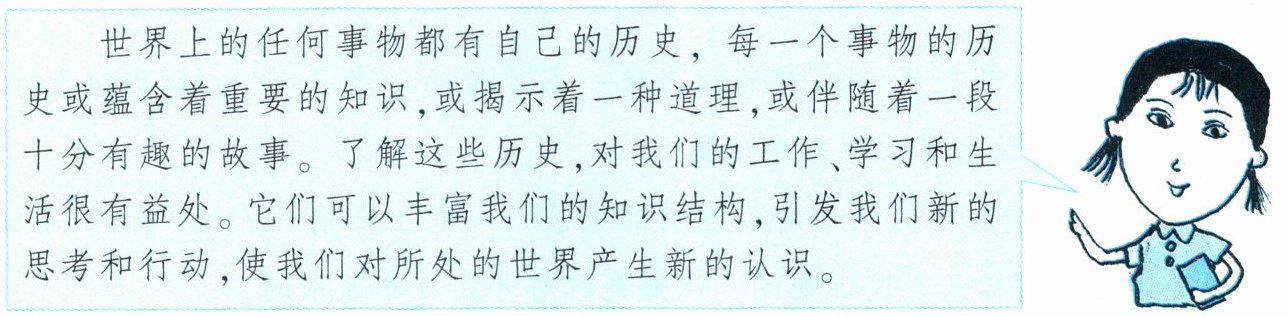 世界上的任何事物都有自己的历史，每一个事物的历
史或蕴含着重要的知识，或揭示着一种道理，或伴随着一段
十分有趣的故事。了解这些历史，对我们的工作、学习和生
活很有益处。它们可以丰富我们的知识结构，引发我们新的
思考和行动，使我们对所处的世界产生新的认识。